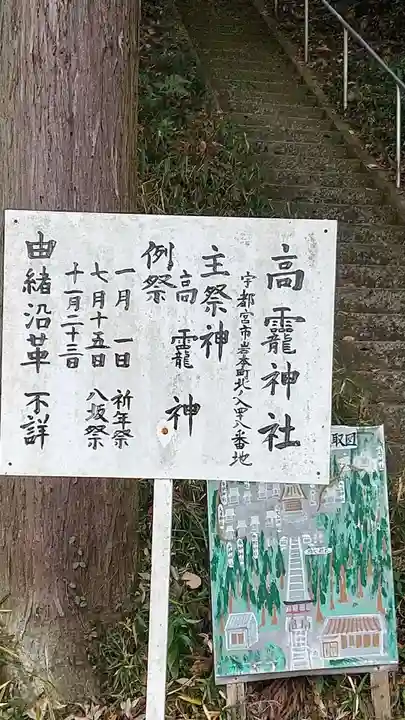 高龗神社
宇都宮市岩本町北ノ入四八番地
主祭神
高龗神
例祭
一月一日 祈年祭
七月十五日 八坂祭
十一月二十三日
由緒沿革 不詳
取図